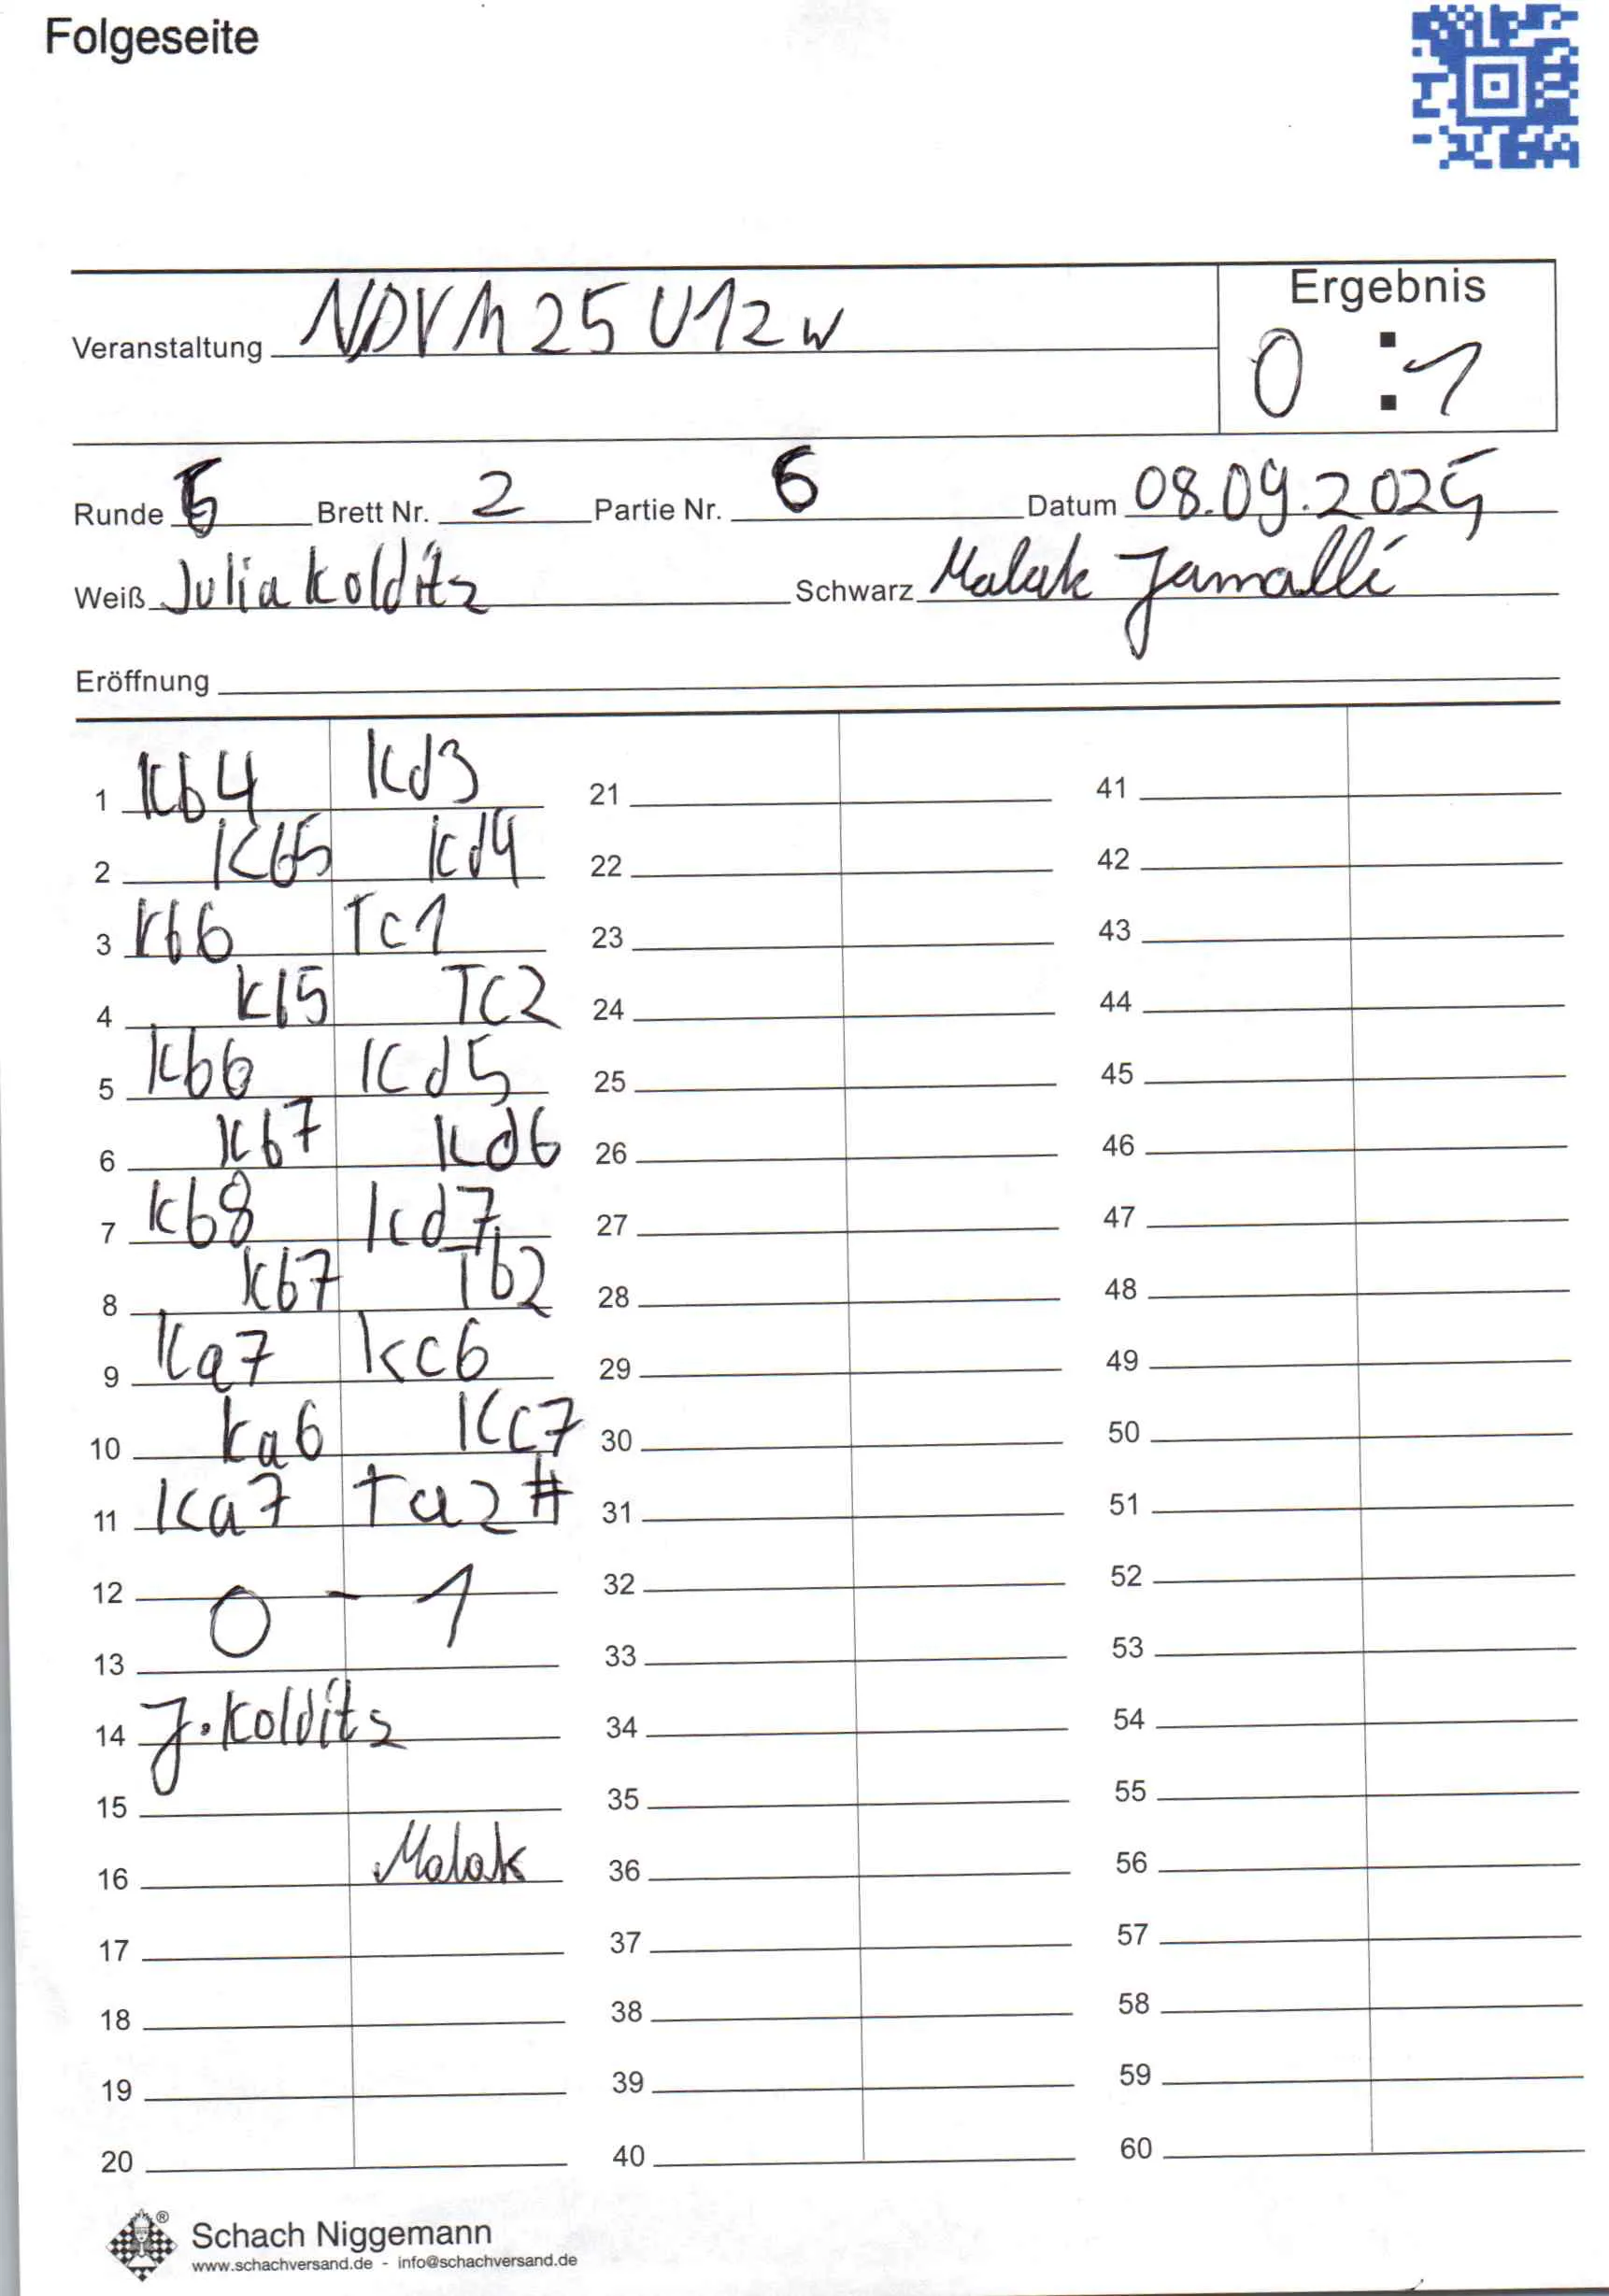 Folgeseite
Veranstaltung NDVM25 U12w
Ergebnis
0 : 1
Runde 6 Brett Nr. 2 Partie Nr. 6 Datum 08.09.2025
Weiß Julia Kolditz Schwarz Malak Jamalli
Eröffnung
1 Kb4 Kd3 21 41
2 Kb5 Kd4 22 42
3 Kb6 Tc1 23 43
4 Kb5 Tc2 24 44
5 Kb6 Kd5 25 45
6 Kb7 Kd6 26 46
7 Kb8 Kd7 27 47
8 Kb7 Tb2 28 48
9 Ka7 Kc6 29 49
10 Ka6 Kc7 30 50
11 Ka7 Ta2# 31 51
12 0 - 1 32 52
13 33 53
14 J. Kolditz 34 54
15 35 55
16 Malak 36 56
17 37 57
18 38 58
19 39 59
20 40 60
®
Schach Niggemann
www.schachversand.de - info@schachversand.de